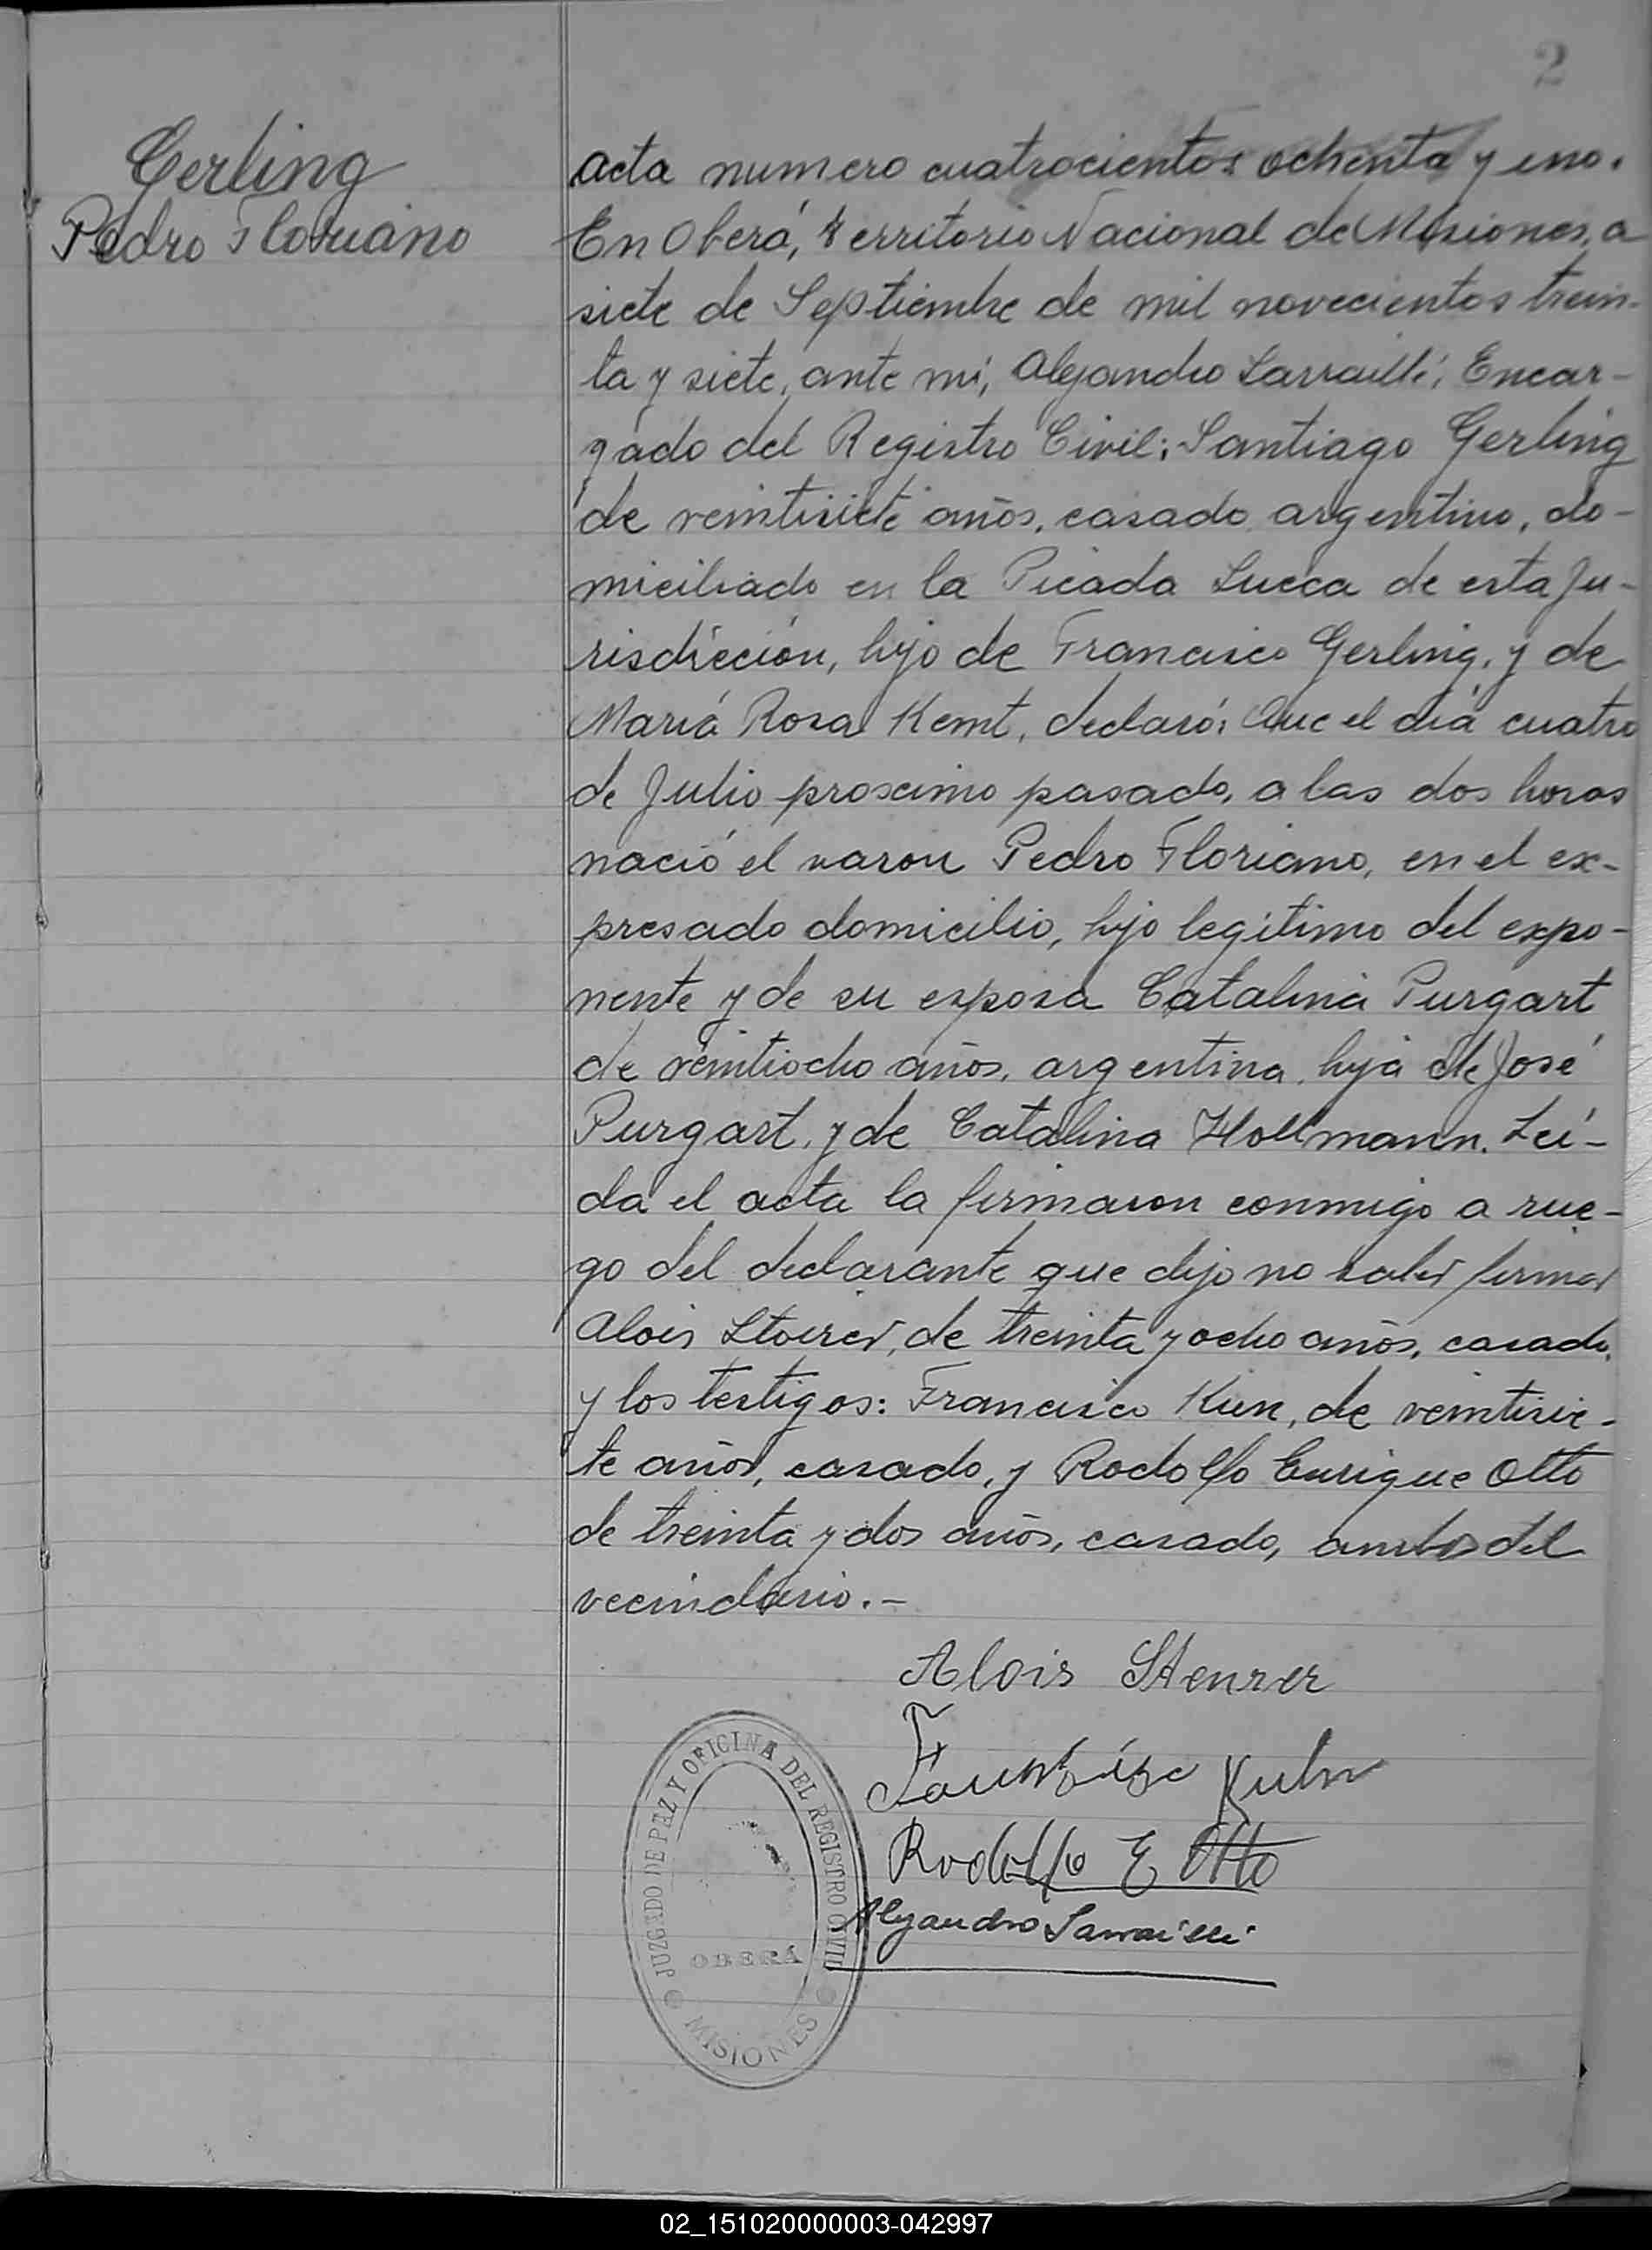 2
Gerling
Pedro Floriano
Acta numero cuatrocientos ochenta y uno.
En Oberá, Territorio Nacional de Misiones, a
siete de Septiembre de mil novecientos trein-
ta y siete, ante mi, Alejandro Sarraillé, Encar-
gado del Registro Civil: Santiago Gerling
de veintisiete años, casado, argentino, do-
miciliado en la Picada Lucca de esta Ju-
risdicción, hijo de Francisco Gerling, y de
María Rosa Kemt, declaró: Que el día cuatro
de Julio proscimo pasado, a las dos horas
nació el varon Pedro Floriano, en el ex-
presado domicilio, hijo legítimo del expo-
nente y de su esposa Catalina Purgart
de veintiocho años, argentina, hija de José
Purgart, y de Catalina Hollmann. Leí-
da el acta la firmaron conmigo a rue-
go del declarante que dijo no saber firmar
Alois, de treinta y ocho años, casado,
y los testigos: Francisco Kien, de veintisie-
te años, casado, y Rodolfo Enrique Otto
de treinta y dos años, casado, ambos del
vecindario.-
Alois
Kuhn
Rodolfo E Otto
Alejandro Sarraillé
JUZGADO DE PAZ Y OFICINA DEL REGISTRO CIVIL
OBERÁ
MISIONES
02_151020000003-042997